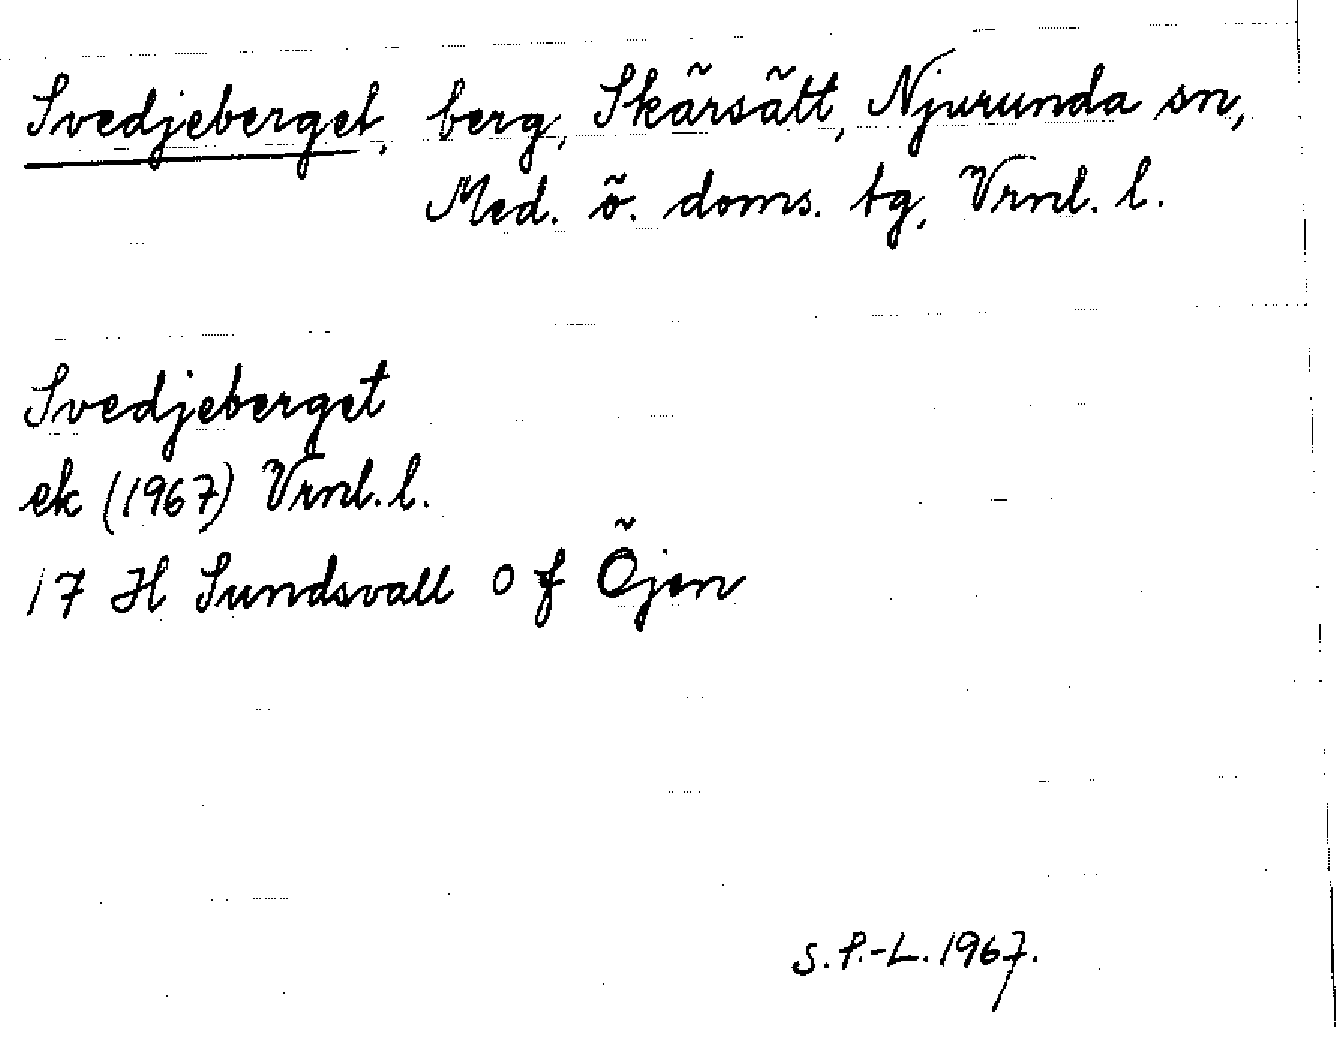 Svedjeberget, berg, Skärsätt, Njurunda sn,
Med. ö. doms. tg, Vrnl. l.
Svedjeberget
ek (1967) Vrnl. l.
17 H Sundsvall O f Öjen
S. P.-L. 1967.